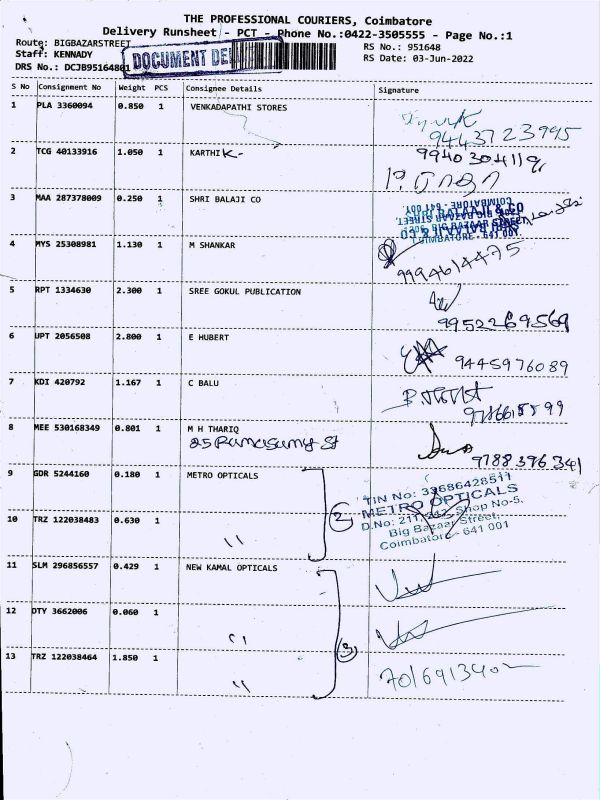 THE PROFESSIONAL COURIERS, Coimbatore
Delivery Runsheet - PCT - Phone No.:0422-3505555 - Page No.:1
Route: BIGBAZARSTREET
RS No.: 951648
Staff: KENNADY
RS Date: 03-Jun-2022
DRS No.: DCJB95164801
DOCUMENT DE
S No Consignment No Weight PCS Consignee Details Signature
1 PLA 3360094 0.850 1 VENKADAPATHI STORES
9443723995
2 TCG 40133916 1.050 1 KARTHIK-
3 MAA 287378009 0.250 1 SHRI BALAJI CO
4 MYS 25308981 1.130 1 M SHANKAR
9994614475
5 RPT 1334630 2.300 1 SREE GOKUL PUBLICATION
9952269569
6 UPT 2056508 2.800 1 E HUBERT
9445976089
7 KDI 420792 1.167 1 C BALU
8 MEE 530168349 0.801 1 M H THARIQ
25 Ramasamy St
9788396341
9 GDR 5244160 0.180 1 METRO OPTICALS
TIN No: 33686428511
METRO OPTICALS
D.No: 211, 212, Shop No-5,
Big Bazaar Street,
Coimbatore - 641 001
2
10 TRZ 122038483 0.630 1 "
11 SLM 296856557 0.429 1 NEW KAMAL OPTICALS
12 OTY 3662006 0.060 1 "
3
13 TRZ 122038464 1.850 1 "
7016913402